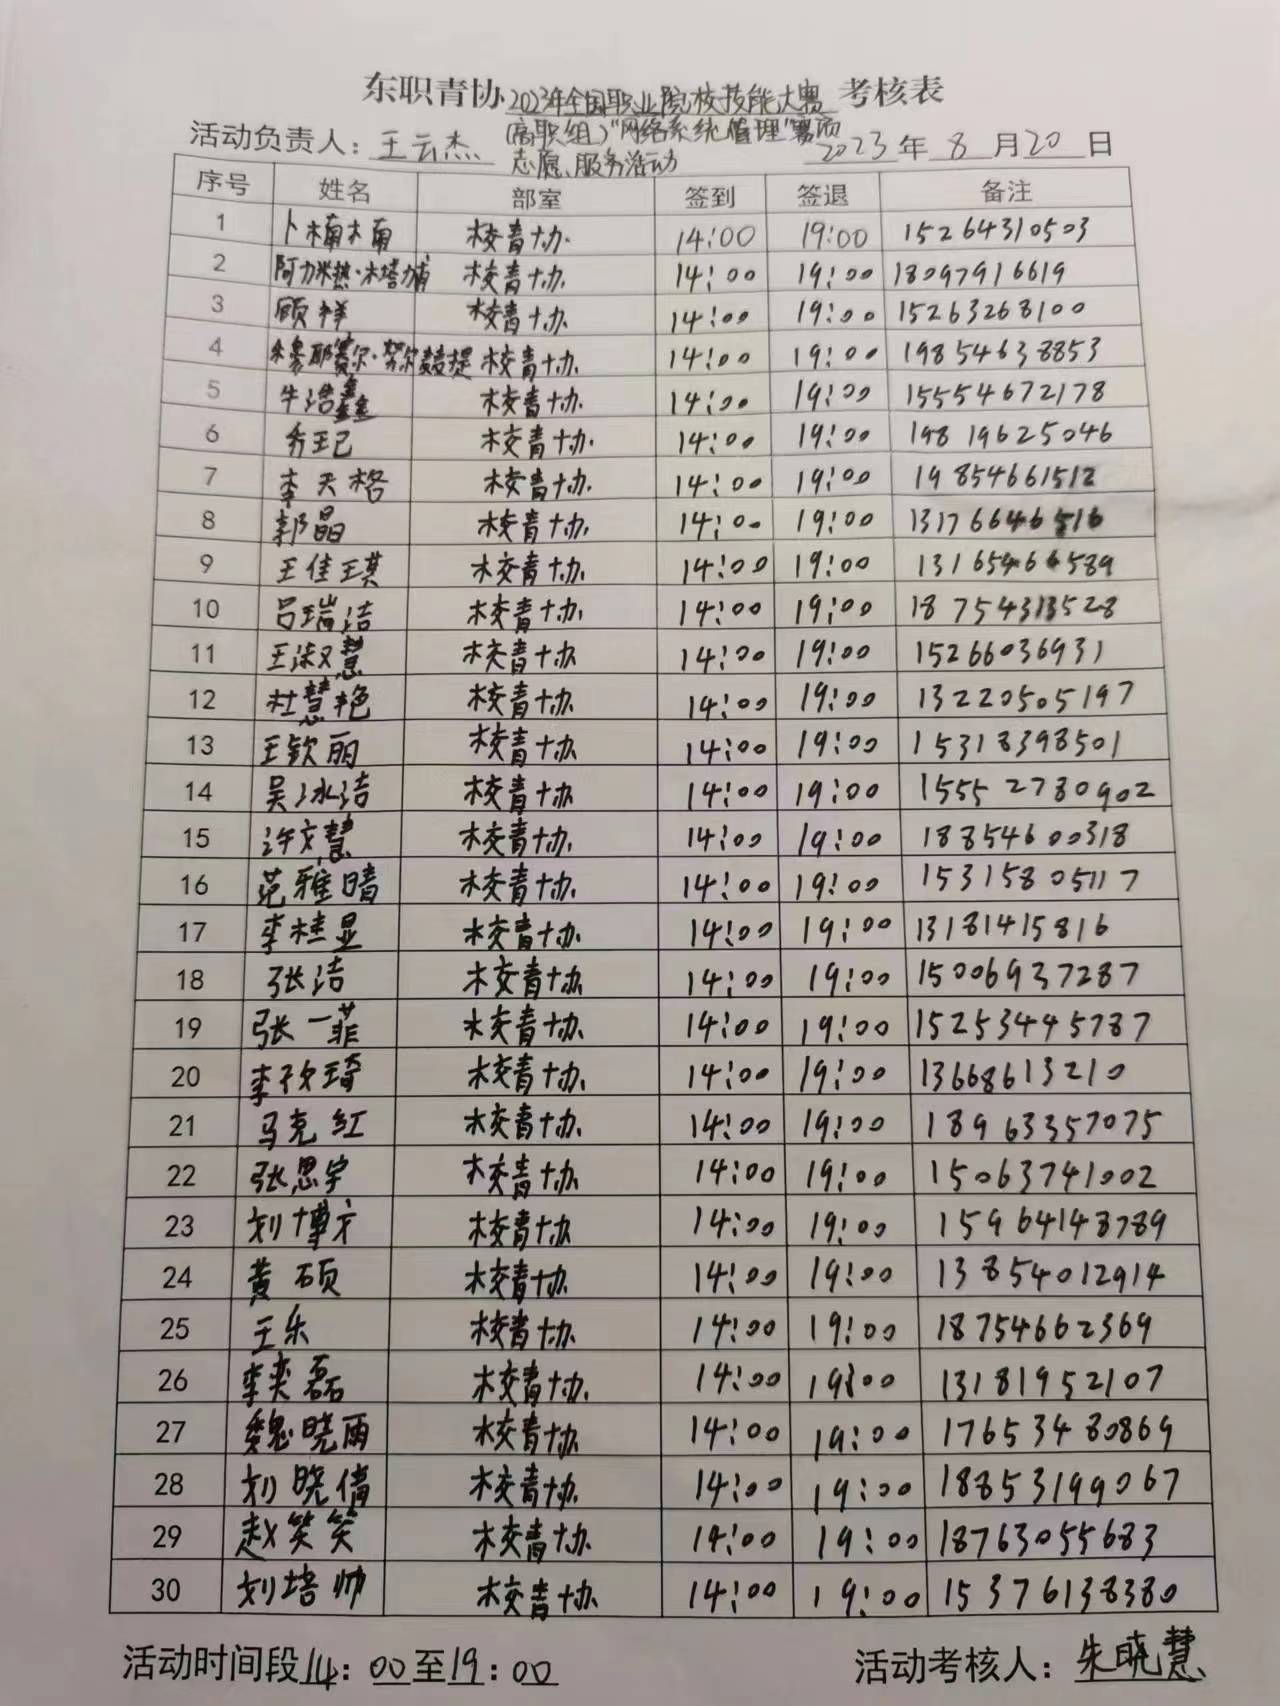 东职青协2023年全国职业院校技能大赛考核表
(高职组)"网络系统管理"赛项
志愿服务活动
活动负责人：王云杰 2023年8月20日
序号 姓名 部室 签到 签退 备注
1 卜楠楠 校青协 14:00 19:00 15264310503
2 阿力米热·木塔力甫 校青协 14:00 19:00 18097916619
3 顾祥 校青协 14:00 19:00 15263268100
4 校青协 14:00 19:00 19854638853
5 牛浩鑫 校青协 14:00 19:00 15554672178
6 校青协 14:00 19:00 19819625046
7 李天格 校青协 14:00 19:00 19854661512
8 郭晶 校青协 14:00 19:00 13176646516
9 王佳琪 校青协 14:00 19:00 13165466589
10 吕瑞洁 校青协 14:00 19:00 18754313528
11 王淑慧 校青协 14:00 19:00 15266036931
12 杜慧艳 校青协 14:00 19:00 13220505197
13 王钦丽 校青协 14:00 19:00 15318398501
14 吴冰洁 校青协 14:00 19:00 15552780902
15 许文慧 校青协 14:00 19:00 18854600318
16 范雅晴 校青协 14:00 19:00 15315805117
17 李桂显 校青协 14:00 19:00 13181415816
18 张洁 校青协 14:00 19:00 15006937287
19 张一菲 校青协 14:00 19:00 15253445787
20 李欣琦 校青协 14:00 19:00 13668613210
21 马克红 校青协 14:00 19:00 18963357075
22 张思宇 校青协 14:00 19:00 15063741002
23 刘博文 校青协 14:00 19:00 15964148789
24 黄硕 校青协 14:00 19:00 13854012914
25 王乐 校青协 14:00 19:00 18754662369
26 李奕磊 校青协 14:00 19:00 13181952107
27 魏晓雨 校青协 14:00 19:00 17653480869
28 刘晓倩 校青协 14:00 19:00 18853199067
29 赵笑笑 校青协 14:00 19:00 18763055683
30 刘培帅 校青协 14:00 19:00 15376138380
活动时间段14：00至19：00 活动考核人：朱晓慧